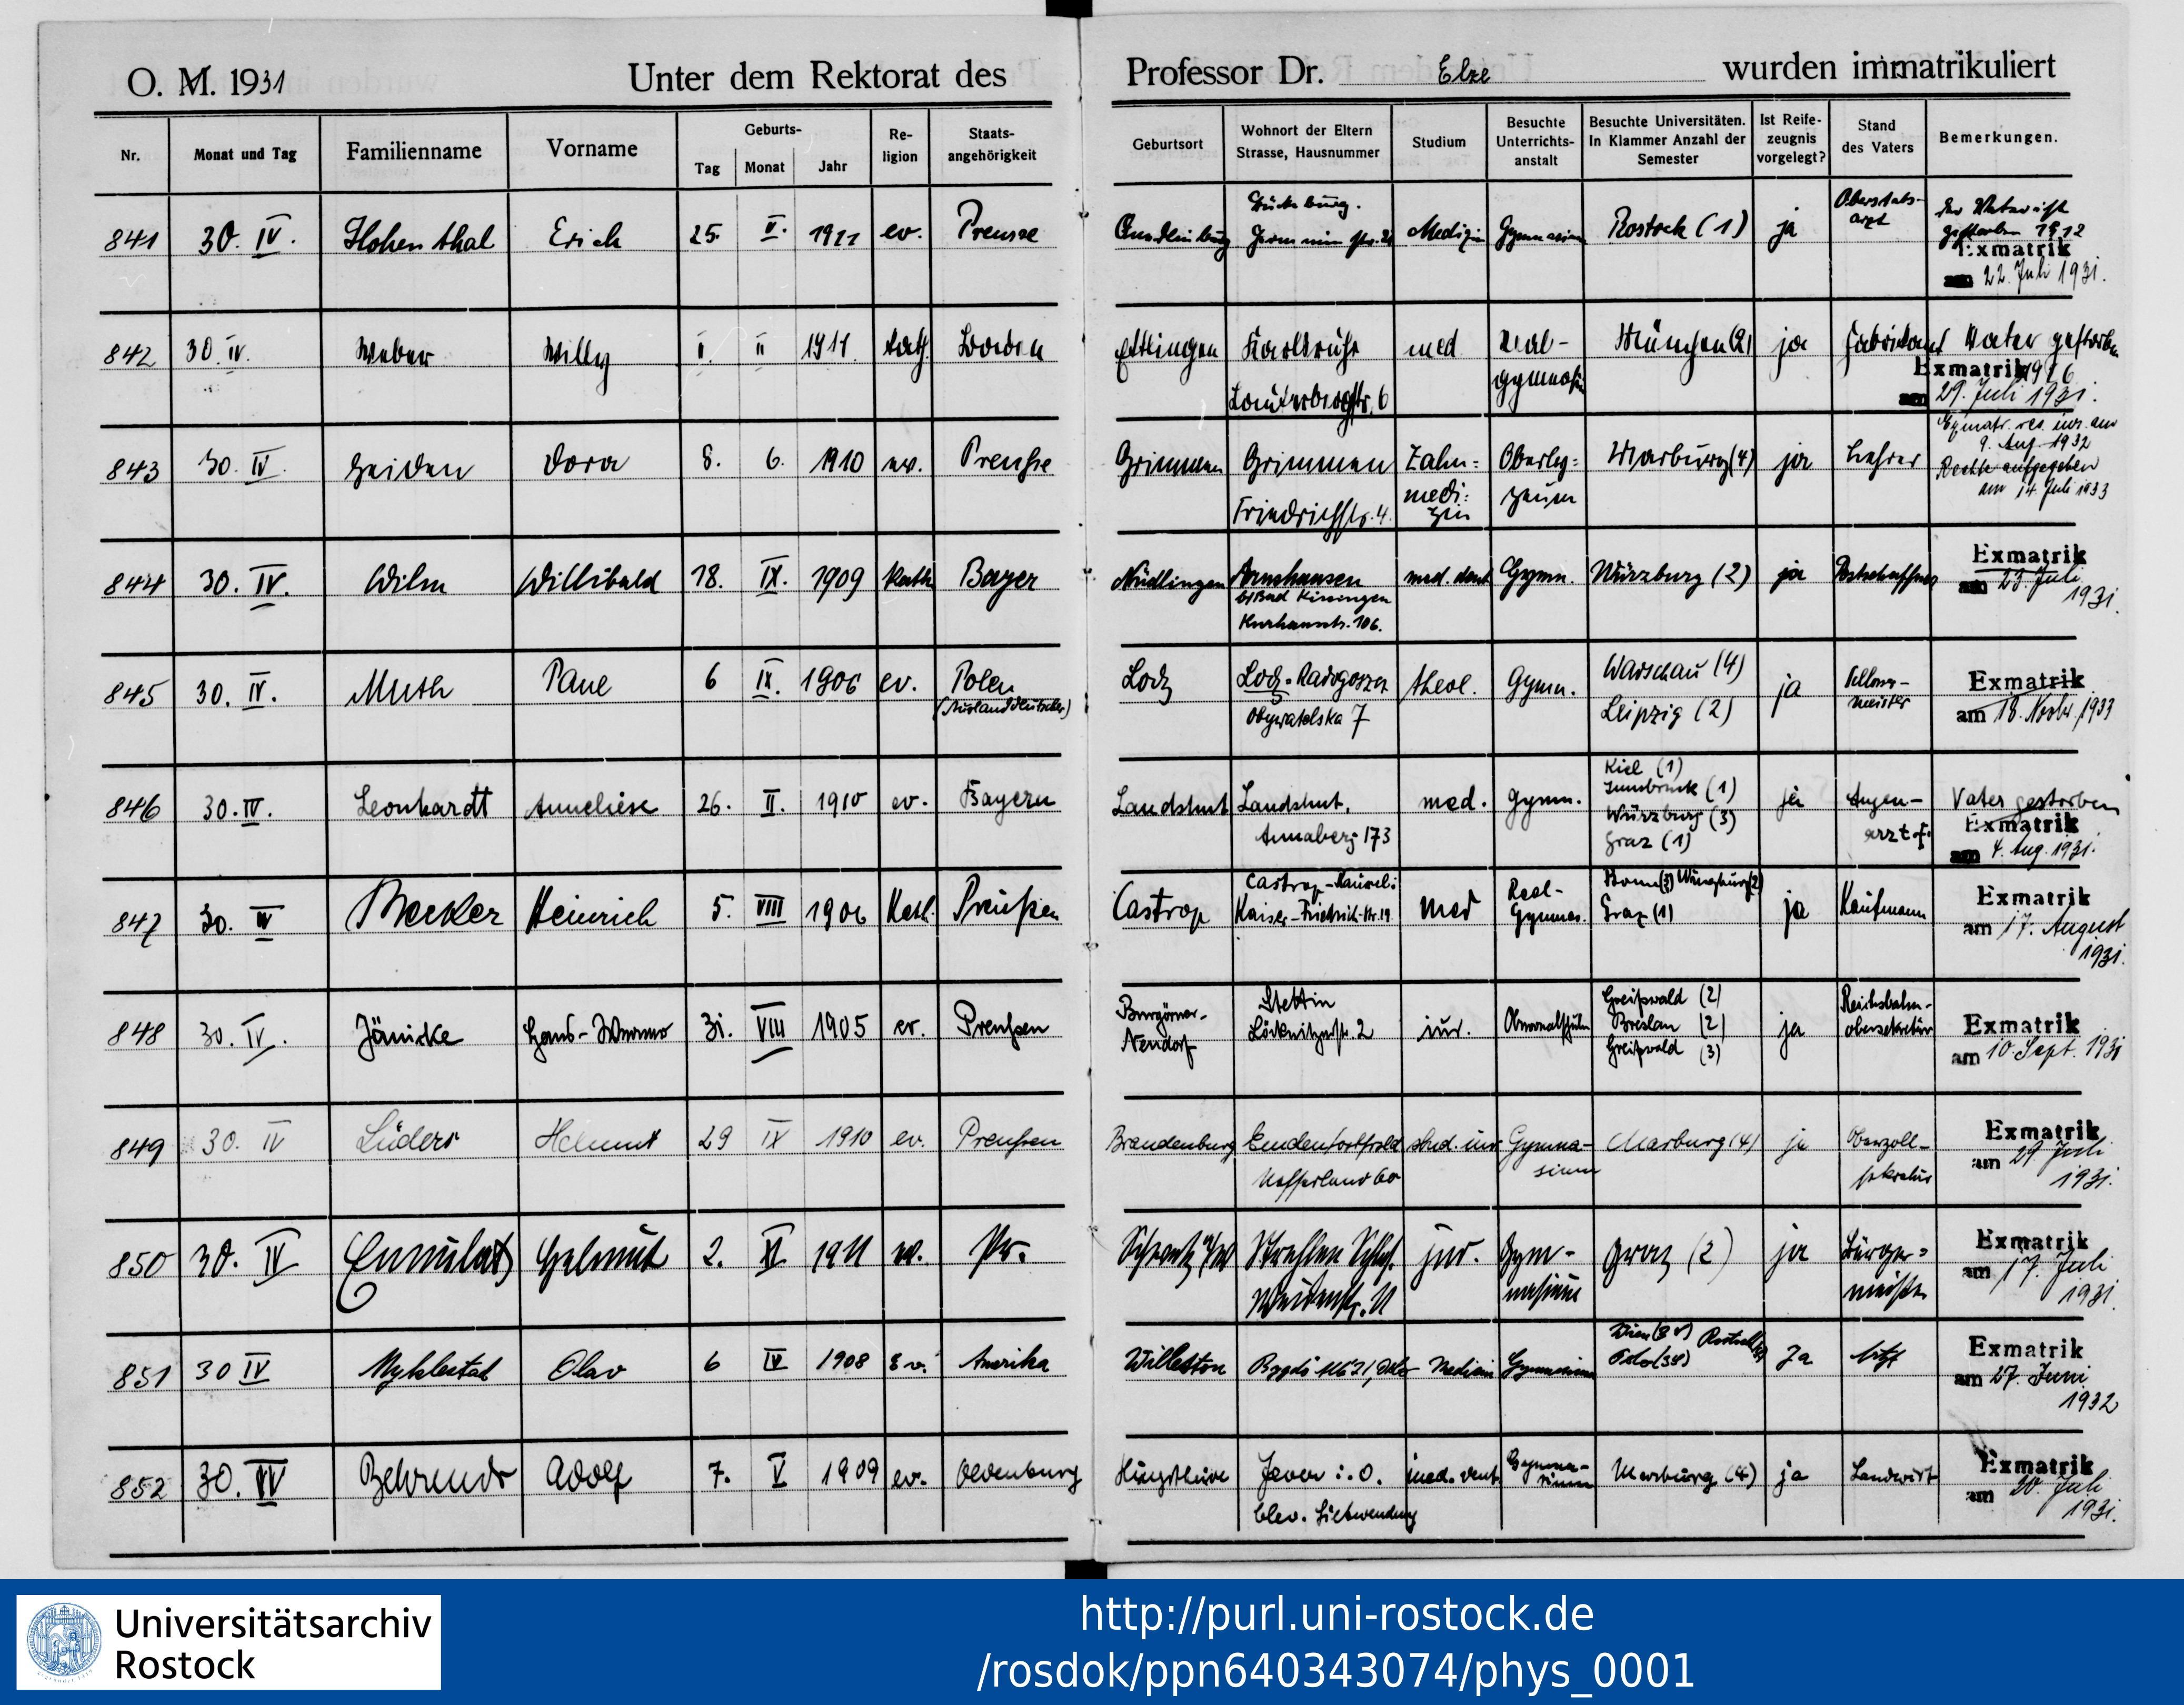 O. M. 1931 Unter dem Rektorat des Professor Dr. Elze wurden immatrikuliert
Nr. Monat und Tag Familienname Vorname Geburts- Tag Monat Jahr Re-ligion Staats-angehörigkeit Geburtsort Wohnort der Eltern Strasse, Hausnummer Studium Besuchte Unterrichts-anstalt Besuchte Universitäten. In Klammer Anzahl der Semester Ist Reife-zeugnis vorgelegt? Stand des Vaters Bemerkungen.
841 30. IV. Hohenthal Erich 25. II. 1911 ev. Preusse Quedlinburg Medizin Gymnasium Rostock (1) ja Oberstabs-arzt
gestorben 1912
Exmatrik
am 22. Juli 1931.
842 30. IV. Weber Willy II 1911 kath. Baden Ettlingen Karlsruhe med Real- München (2) ja Fabrikant Vater gestorben
gymnasium Exmatrik
6 am 29. Juli 1931.
843 30. IV. Heiden Dora 8. 6. 1910 ev. Preuße Grimmen Grimmen Zahn= Oberly= Marburg (4) ja Lehrer
Friedrichstr. 4. medi=zin zeum
9. Aug. 1932
Rechte aufgegeben
am 14. Juli 1933
844 30. IV. Wilm Willibald 18. IX. 1909 Kath Bayer Nüdlingen Arnshausen med. dent Gymn. Würzburg (2) ja Postschaffner Exmatrik
b/Bad Kissingen am 23. Juli
Kurhausstr. 106. 1931.
845 30. IV. Muth Paul 6 IX. 1906 ev. Polen Lodz Lodz-Radogoszcz theol. Gymn. Warschau (4) ja Exmatrik
(Auslanddeutscher) Obywatelska 7 Leipzig (2) meister am 18. Novbr. 1933
846 30. IV. Leonhardt Anneliese 26. II. 1910 ev. Bayern Landshut Landshut, med. Gymn. Kiel (1) Innsbruck (1) ja Augen- Vater gestorben
Annaberg 173 Würzburg (3) arzt †. Exmatrik
Graz (1) am 4. Aug. 1931.
847 30. IV Becker Heinrich 5. VIII 1906 Kath. Preußen Castrop Castrop-Rauxel: med Real- Bonn (3) Würzburg (2) ja Kaufmann Exmatrik
Kaiser-Friedrich-Str. 19. Gymnas. Graz (1) am 17. August
1931.
848 30. IV. Jänicke Hans-Werner 31. VIII 1905 ev. Preußen Burgörner- Stettin jur. Oberrealschule Greifswald (2) ja Reichsbahn- Exmatrik
Neudorf Löcknitzerstr. 2 Breslau (2) obersekretär am 10. Sept. 1931
Greifswald (3)
849 30. IV Lüders Helmut 29 IX 1910 ev. Preußen Brandenburg stud. iur Gymna- Marburg (4) ja Oberzoll- Exmatrik
60 sium sekretär am 29 Juli
1931.
850 30. IV Helmut 2. XI 1911 ev. Pr. jur. Gym- Graz (2) ja Bürger= Exmatrik
Weidenstr. 11 nasium meister am 17. Juli
1931.
851 30 IV Myklestad Olav 6 IV 1908 Ev. Amerika Williston Medizin Gymnasium Ja Exmatrik
am 27. Juni
1932
852 30. IV Behrends Adolf 7. V 1909 ev. Oldenburg Jever i. O. med. dent. Gymna-sium Marburg (4) ja Landwirt Exmatrik
am 20. Juli
1931.
Universitätsarchiv
Rostock
http://purl.uni-rostock.de
/rosdok/ppn640343074/phys_0001